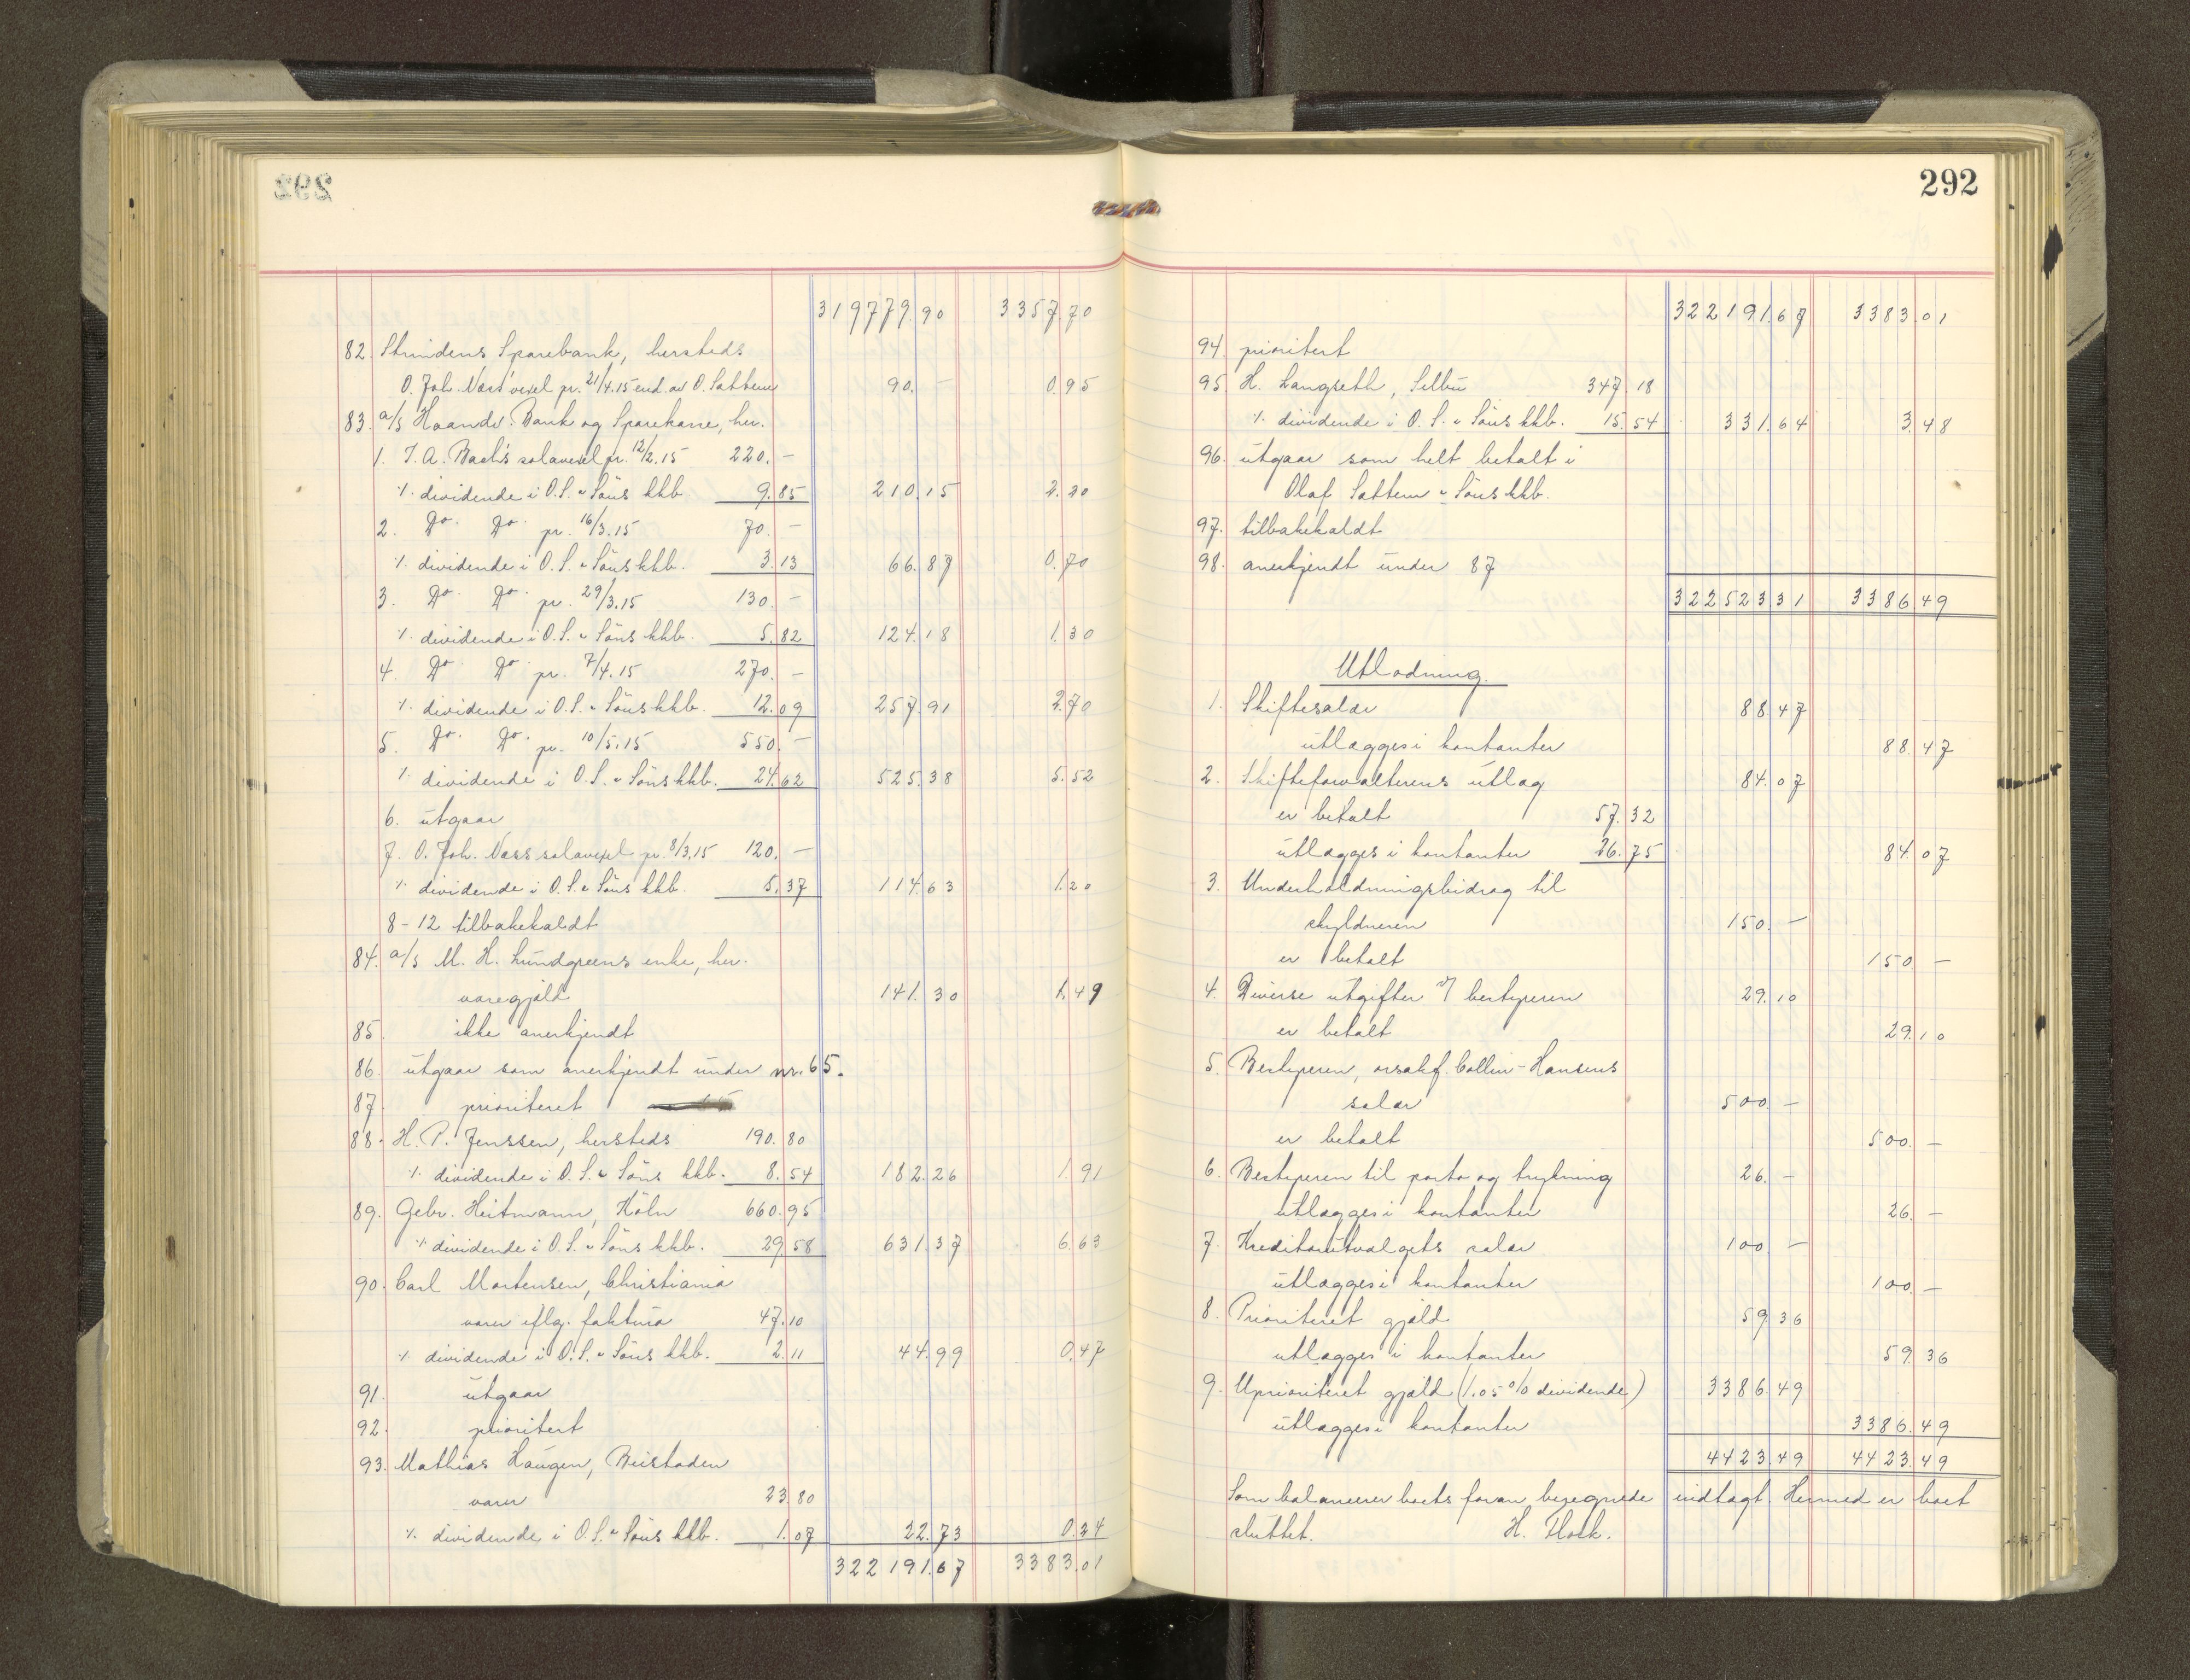 292
319779.90 3357.70
82. Strindens Sparebank, hersteds
O. Joh. Næss' vexel pr. 21/4.15 end. av O. Sattem 90. - 0.95
83. a/s Haandv. Bank og Sparekasse, her.
1. I. A. Bach's solavexel pr. 12/2.15 220. -
% dividende i O.S. & Söns kkb. 9.85 210.15 2.20
2. Do. Do. pr. 16/3.15 70. -
% dividende i O.S. & Söns kkb. 3.13 66.87 0.70
3. Do. Do. pr. 29/3.15 130. -
% dividende i O.S. & Söns kkb. 5.82 124.18 1.30
4. Do. Do. pr. 7/4.15 270. -
% dividende i O.S. & Söns kkb. 12.09 257.91 2.70
5. Do. Do. pr. 10/5.15 550. -
% dividende i O.S. & Söns kkb. 24.62 525.38 5.52
6. utgaar
7. O. Joh. Næss solavexel pr. 8/3.15 120. -
% dividende i O.S. & Söns kkb. 5.37 114.63 1.20
8-12 tilbakekaldt
84. a/s M. H. Lundgreens enke, her.
varegjæld 141.30 1.49
85. ikke anerkjendt
86. utgaar som anerkjendt under nr. 65.
87. prioriteret
88. H. P. Jenssen, hersteds 190.80
% dividende i O.S. & Söns kkb. 8.54 182.26 1.91
89. Gebr. Heitmann, Köln 660.95
% dividende i O.S. & Söns kkb. 29.58 631.37 6.63
90. Carl Mortensen, Christiania
varer iflg. faktura 47.10
% dividende i O.S. & Söns kkb. 2.11 44.99 0.47
91. utgaar
92. prioritert
93. Mathias Haugen, Beistaden
varer 23.80
% dividende i O.S. & Söns kkb. 1.07 22.73 0.24
322191.67 3383.01
292
322191.67 3383.01
94. prioritert
95. H. Langseth, Selbu 347.18
% dividende i O.S. & Söns kkb. 15.54 331.64 3.48
96. utgaar som helt betalt i
Olaf Sattem & Söns kkb.
97. tilbakekaldt
98. anerkjendt under 87
322523.31 3386.49
Utlodning.
1. Skiftesalær 88.47
utlægges i kontanter 88.47
2. Skifteforvalterens utlæg 84.07
er betalt 57.32
utlægges i kontanter 26.75 84.07
3. Underholdningsbidrag til
skyldneren 150. -
er betalt 150. -
4. Diverse utgifter v/ bestyreren 29.10
er betalt 29.10
5. Bestyreren, orsakf. Collin-Hansens
salær 500. -
er betalt 500. -
6. Bestyreren til porto og trykning 26. -
utlægges i kontanter 26. -
7. Kreditorutvalgets salær 100. -
utlægges i kontanter 100. -
8. Prioriteret gjæld 59.36
utlægges i kontanter 59.36
9. Uprioriteret gjæld (1.05% dividende) 3386.49
utlægges i kontanter 3386.49
4423.49 4423.49
Som balancerer boets foran beregnede indtægt. Hermed er boet
sluttet. H. Flock.